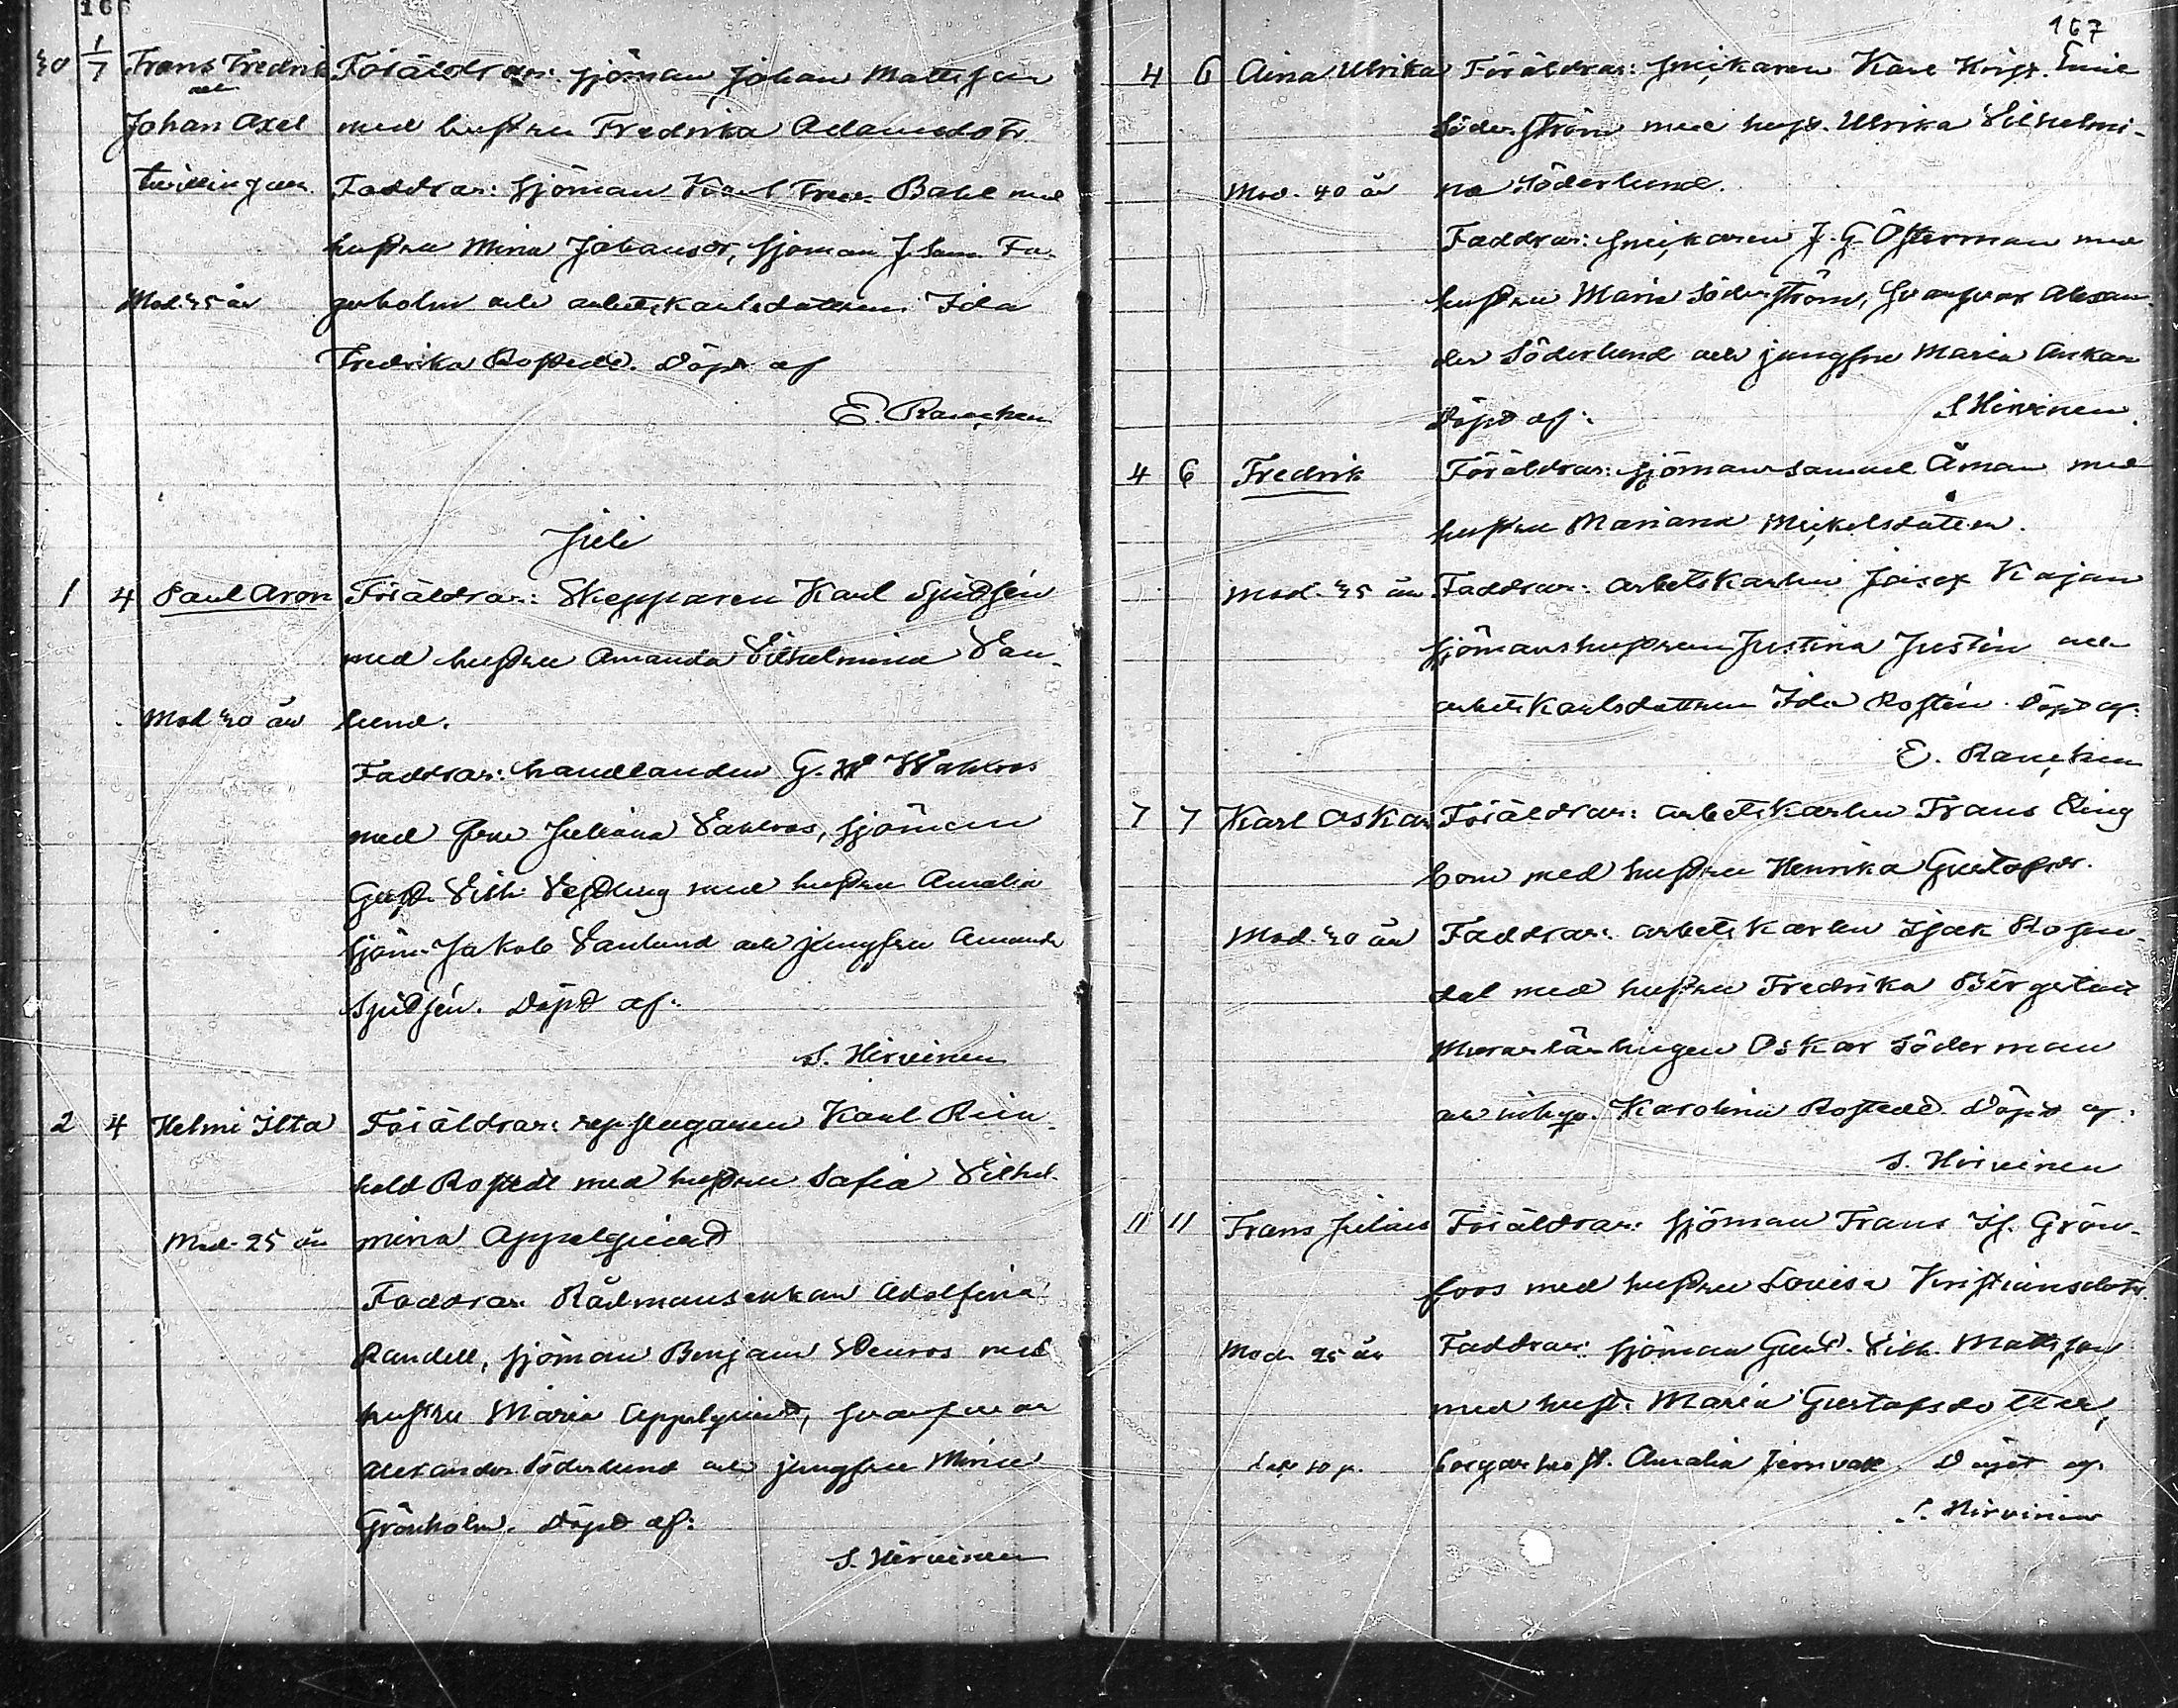 166
30 1/7 Frans Fredrik Föräldrar: sjöman Johan Mattsson
och
Johan Axel med hustru Fredrika Adamsdotr.
tvillingar. Faddrar: sjöman Karl Fredr. Dahl med
hustru Mina Johansdr, sjöman J. Sam. Fa-
Mod. 35 år gerholm och arbetskarlsdottren Ida
Fredrika Rostedt. Döpt af
E. Rancken
Juli
1 4 Paul Aron Föräldrar: Skepparen Karl Sjudsén
med hustru Amanda Vilhelmina Van-
Mod 30 år lund.
Faddrar: handlanden G. W Wahlroos
med fru Juliana Vahlroos, sjöman
Gust. Vilh. Vestling med hustru Amalia
sjöm. Jakob Vanlund och jungfru Amanda
Sjudsén. Döpt af:
S. Hirvinen
2 4 Helmi Ilta Föräldrar: repslagaren Karl Rein-
hold Rostedt med hustru Sofia Vilhel-
Mod. 25 år mina Appelqvist
Faddrar: Rådmansenkan Adolfina
Randell, sjöman Benjam Venros med
hustru Maria Appelqvist, svarfvar
Alexander Söderlund och jungfru Mina
Grönholm. Döpt af:
S. Hirvinen
167
4 6 Aina Ulrika Föräldrar: snickaren Karl Krist. Emil
Söderström med hust. Ulrika Vilhelmi-
Mod. 40 år na Söderlund.
Faddrar: snickaren J. G. Österman med
hustru Maria Söderström, svarfvar Alexan-
der Söderlund och jungfru Maria Ankar
Döpt af: S Hirvinen.
4 6 Fredrik Föräldrar: sjöman Samuel Åman med
hustru Mariana Mickelsdotter.
Mod. 35 år Faddrar: arbetskarlen Josef Kajan
sjömanshustrun Justina Justén och
arbetskarlsdottren Ida Rostén. Döpt af:
E. Rancken
7 7 Karl Oskar Föräldrar: arbetskarlen Frans Eling
bom med hustru Henrika Gustafsdr.
Mod. 30 år Faddrar: arbetskarlen Isak Rosen-
dal med hustru Fredrika Bergelund
Murarlärlingen Oskar Söderman
och inhys. Karolina Rostedt. Döpt af:
S. Hirvinen
11 11 Frans Julius Föräldrar: sjöman Frans Is. Grön-
foos med hustru Lovisa Kristiansdotr.
Mod. 25 år Faddrar: sjöman Gust. Vilh. Mattsson
med hust. Maria Gustafsdotter,
borgarhust. Amalia Jernvall. Döpt af.
S. Hirvinen